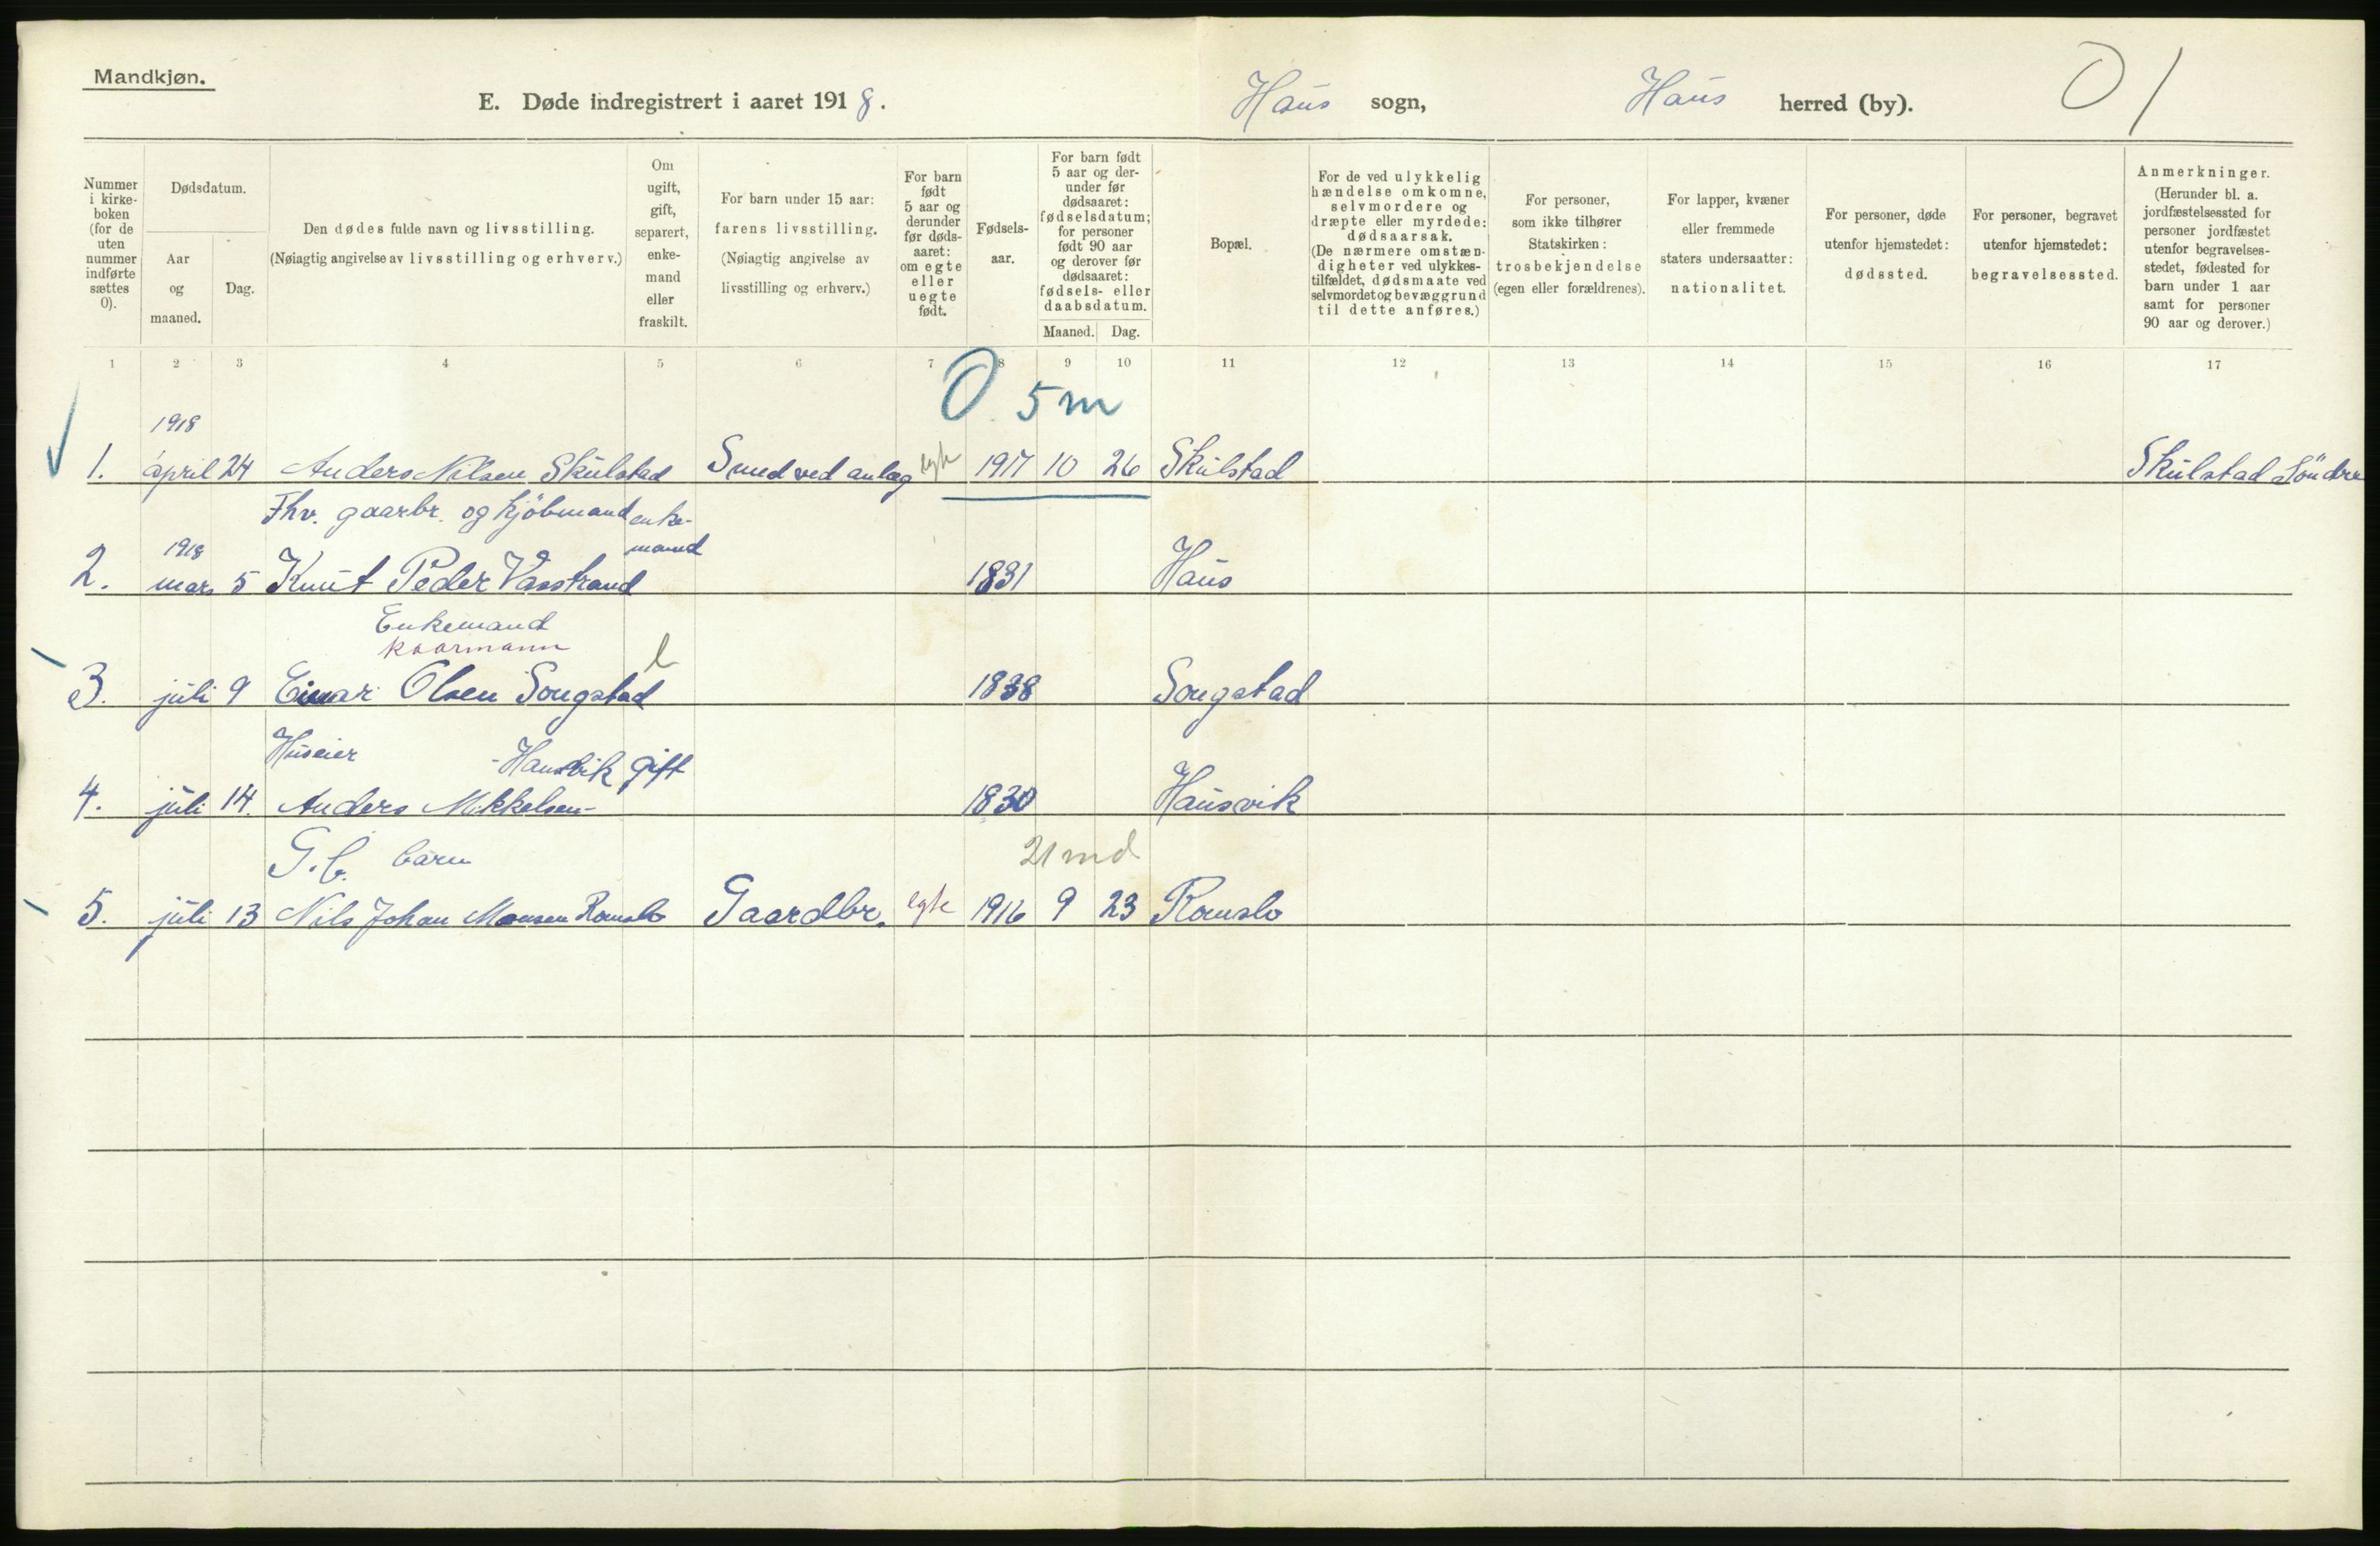 Mandkjøn.
E. Døde indregistrert i aaret 1918. Haus sogn, Haus herred (by). 0 1
Nummer i kirke-boken (for de uten nummer indførte sættes 0).
Dødsdatum.
Aar og maaned.
Dag.
Den dødes fulde navn og livsstilling.
(Nøiagtig angivelse av livsstilling og erhverv.)
Om ugift, gift, separert, enke-mand eller fraskilt.
For barn under 15 aar:
farens livsstilling.
(Nøiagtig angivelse av
livsstilling og erhverv.)
For barn født 5 aar og derunder før døds-aaret: om egte eller uegte født.
Fødsels-aar.
For barn født 5 aar og der-under før dødsaaret: fødselsdatum; for personer født 90 aar og derover før dødsaaret: fødsels- eller daabsdatum.
Maaned. Dag.
Bopæl.
For de ved ulykkelig hændelse omkomne, selvmordere og dræpte eller myrdede: dødsaarsak. (De nærmere omstæn-digheter ved ulykkes-tilfældet, dødsmaate ved selvmordet og bevæggrund til dette anføres.)
For personer,
som ikke tilhører
Statskirken:
trosbekjendelse
(egen eller forældrenes).
For lapper, kvæner
eller fremmede
staters undersaatter:
nationalitet.
For personer, døde
utenfor hjemstedet:
dødssted.
For personer, begravet
utenfor hjemstedet:
begravelsessted.
Anmerkninger.
(Herunder bl. a. jordfæstelsessted for personer jordfæstet utenfor begravelses-stedet, fødested for barn under 1 aar samt for personer 90 aar og derover.)
1 2 3 4 5 6 7 8 9 10 11 12 13 14 15 16 17
0 5 m
1918
1. april 24 Anders Nilsen Skulstad Smed ved anlæg egte 1917 10 26 Skulstad Skulstad Söndre
Fhv. gaarbr. og kjöbmand enke-
1918 mand
2. mars 5 Knut Peder Vasstrand 1831 Haus
Enkemand
kaarmann
3. juli 9 Einar Olsen Songstad e 1838 Songstad
Huseier - Hausvik gift
4. juli 14. Anders Mikkelsen- 1830 Hausvik
G. b. barn 21 md
5. juli 13 Nils Johan Monsen Romslo Gaardbr. egte 1916 9 23 Romslo